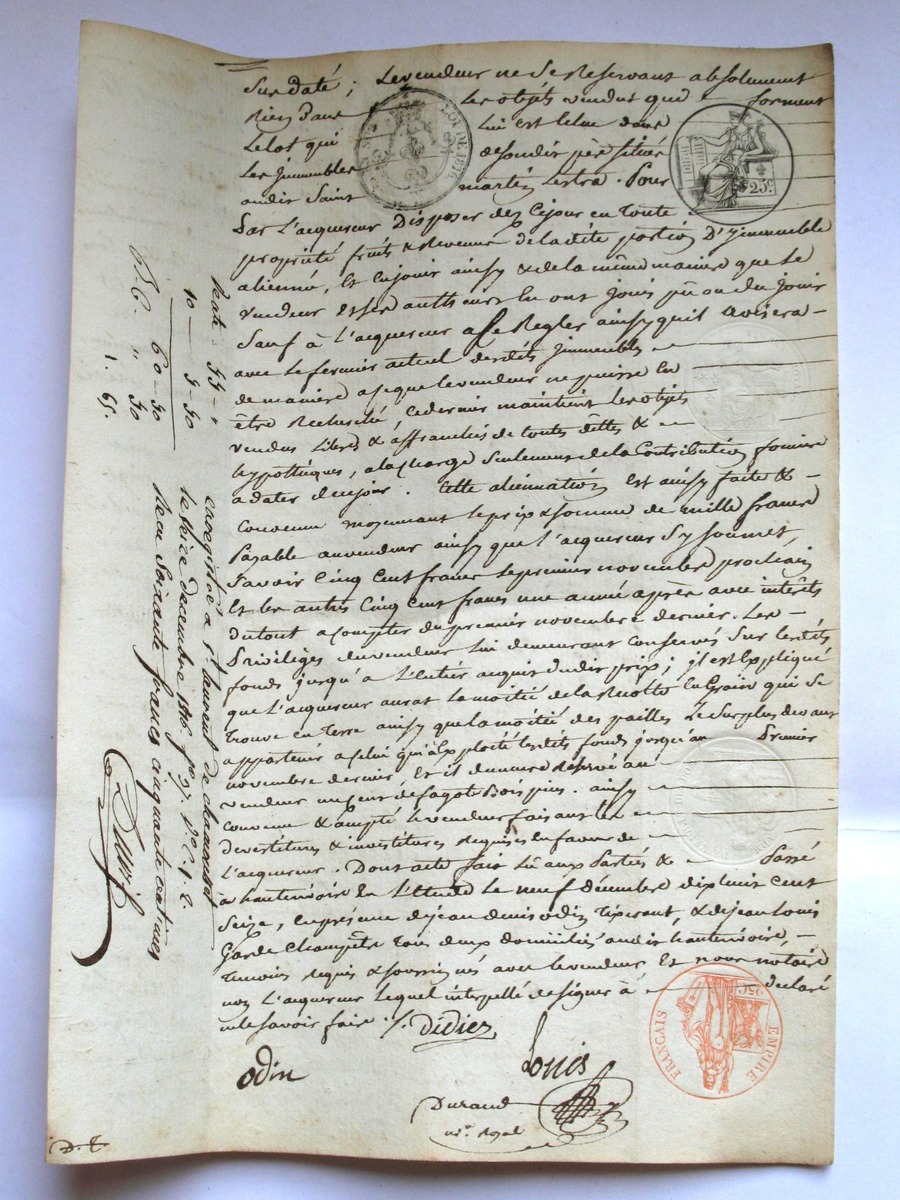 Sus daté ; Le vendeur ne se Reservant absolument
Rien dans Les objets vendus que forment
Le lot qui Lui est Echu dans
Les Immeubles de son dit père situés
audit Saint martin Lestra. Pour
Par L'acquereur Disposer dez Cejour en toute
propriété fruits & Revenus de la dite portion D'Immeuble
alienné, Et En jouir ainsy & de la même maniere que Le
vendeur et ses autheurs En ont Jouis pû ou dû Jouir
Sauf à L'acquereur a se Regler ainsy quil avisera
avec Le fermier actuel desdits Immeubles
de maniere a ce que le vendeur ne puisse En
être Recherché, ce dernier maintient Les objets
vendus Libres & affranchis de toutes dettes &
hypothéques, a la charge seulement de la Contribution fonciere
a dater de ce jour. Cette aliennation est ainsy faite &
Convenue moyennant le prix & somme de mille francs
Payable au vendeur ainsy que L'acquereur s'y soumet,
Savoir Cinq Cent francs Le premier novembre prochain
Et les autres Cinq Cent francs une année après avec intérêts
du tout a compter du premier novembre dernier. Les
Privilèges du vendeur Lui demeurant Conservés Sur Lesdits
fonds jusqu'a L'entier acquit du dit prix ; il est Expliqué
que L'acquereur aurat la moitié de la Recolte En Grain qui se
Trouve en terre ainsy que la moitié des pailles Le Surplus devant
appartenir a celui qui à Exploité lesdits fonds jusqu'au Premier
novembre dernier, Et il demeure Réservé au
vendeur un peu de fagots Bois pins. ainsy
convenu & accepté Le vendeur faisant les
devestitures & investitures Requises En faveur de
L'acquereur. Dont acte fait Lû aux Parties & Passé
à hauterivoire En L'Etude Le neuf décembre dix huit Cent
Seize, En présence de jean denis odin Tisserant, & de jean Louis
Garde Champêtre Tous deux domiciliés audit hauterivoire,
Temoins Requis & soussignés avec Le vendeur Et nous notaire
non L'acquereur Lequel interpellé de signer à déclaré
ne le savoir faire. /. Didier
odin Louis
Durand
n.re Royal
D. &
Enregistré à St Laurent de chamousset
le seize decembre 1816 fo 97. Vo C. 1. &
Recu Soixante francs cinquante centimes
55 - "
10 — 5 - 50
60 - 50
1. 65.
LOI DE 1816
25 C
EMPIRE FRANCAIS
25C